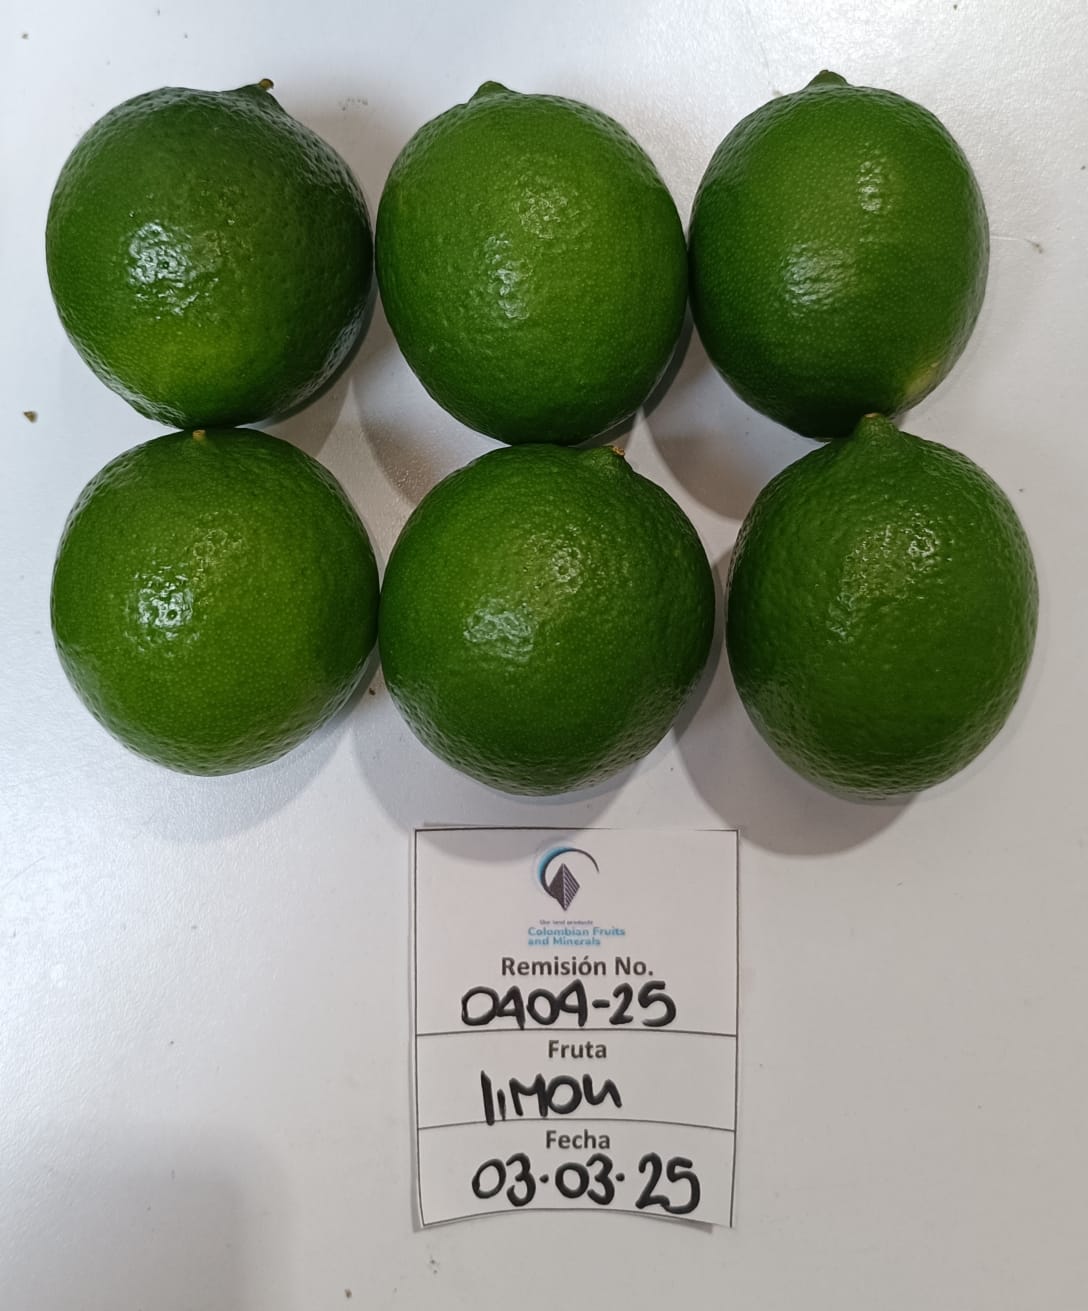 Our land products
Colombian Fruits
and Minerals
Remisión No.
0404-25
Fruta
limon
Fecha
03.03.25